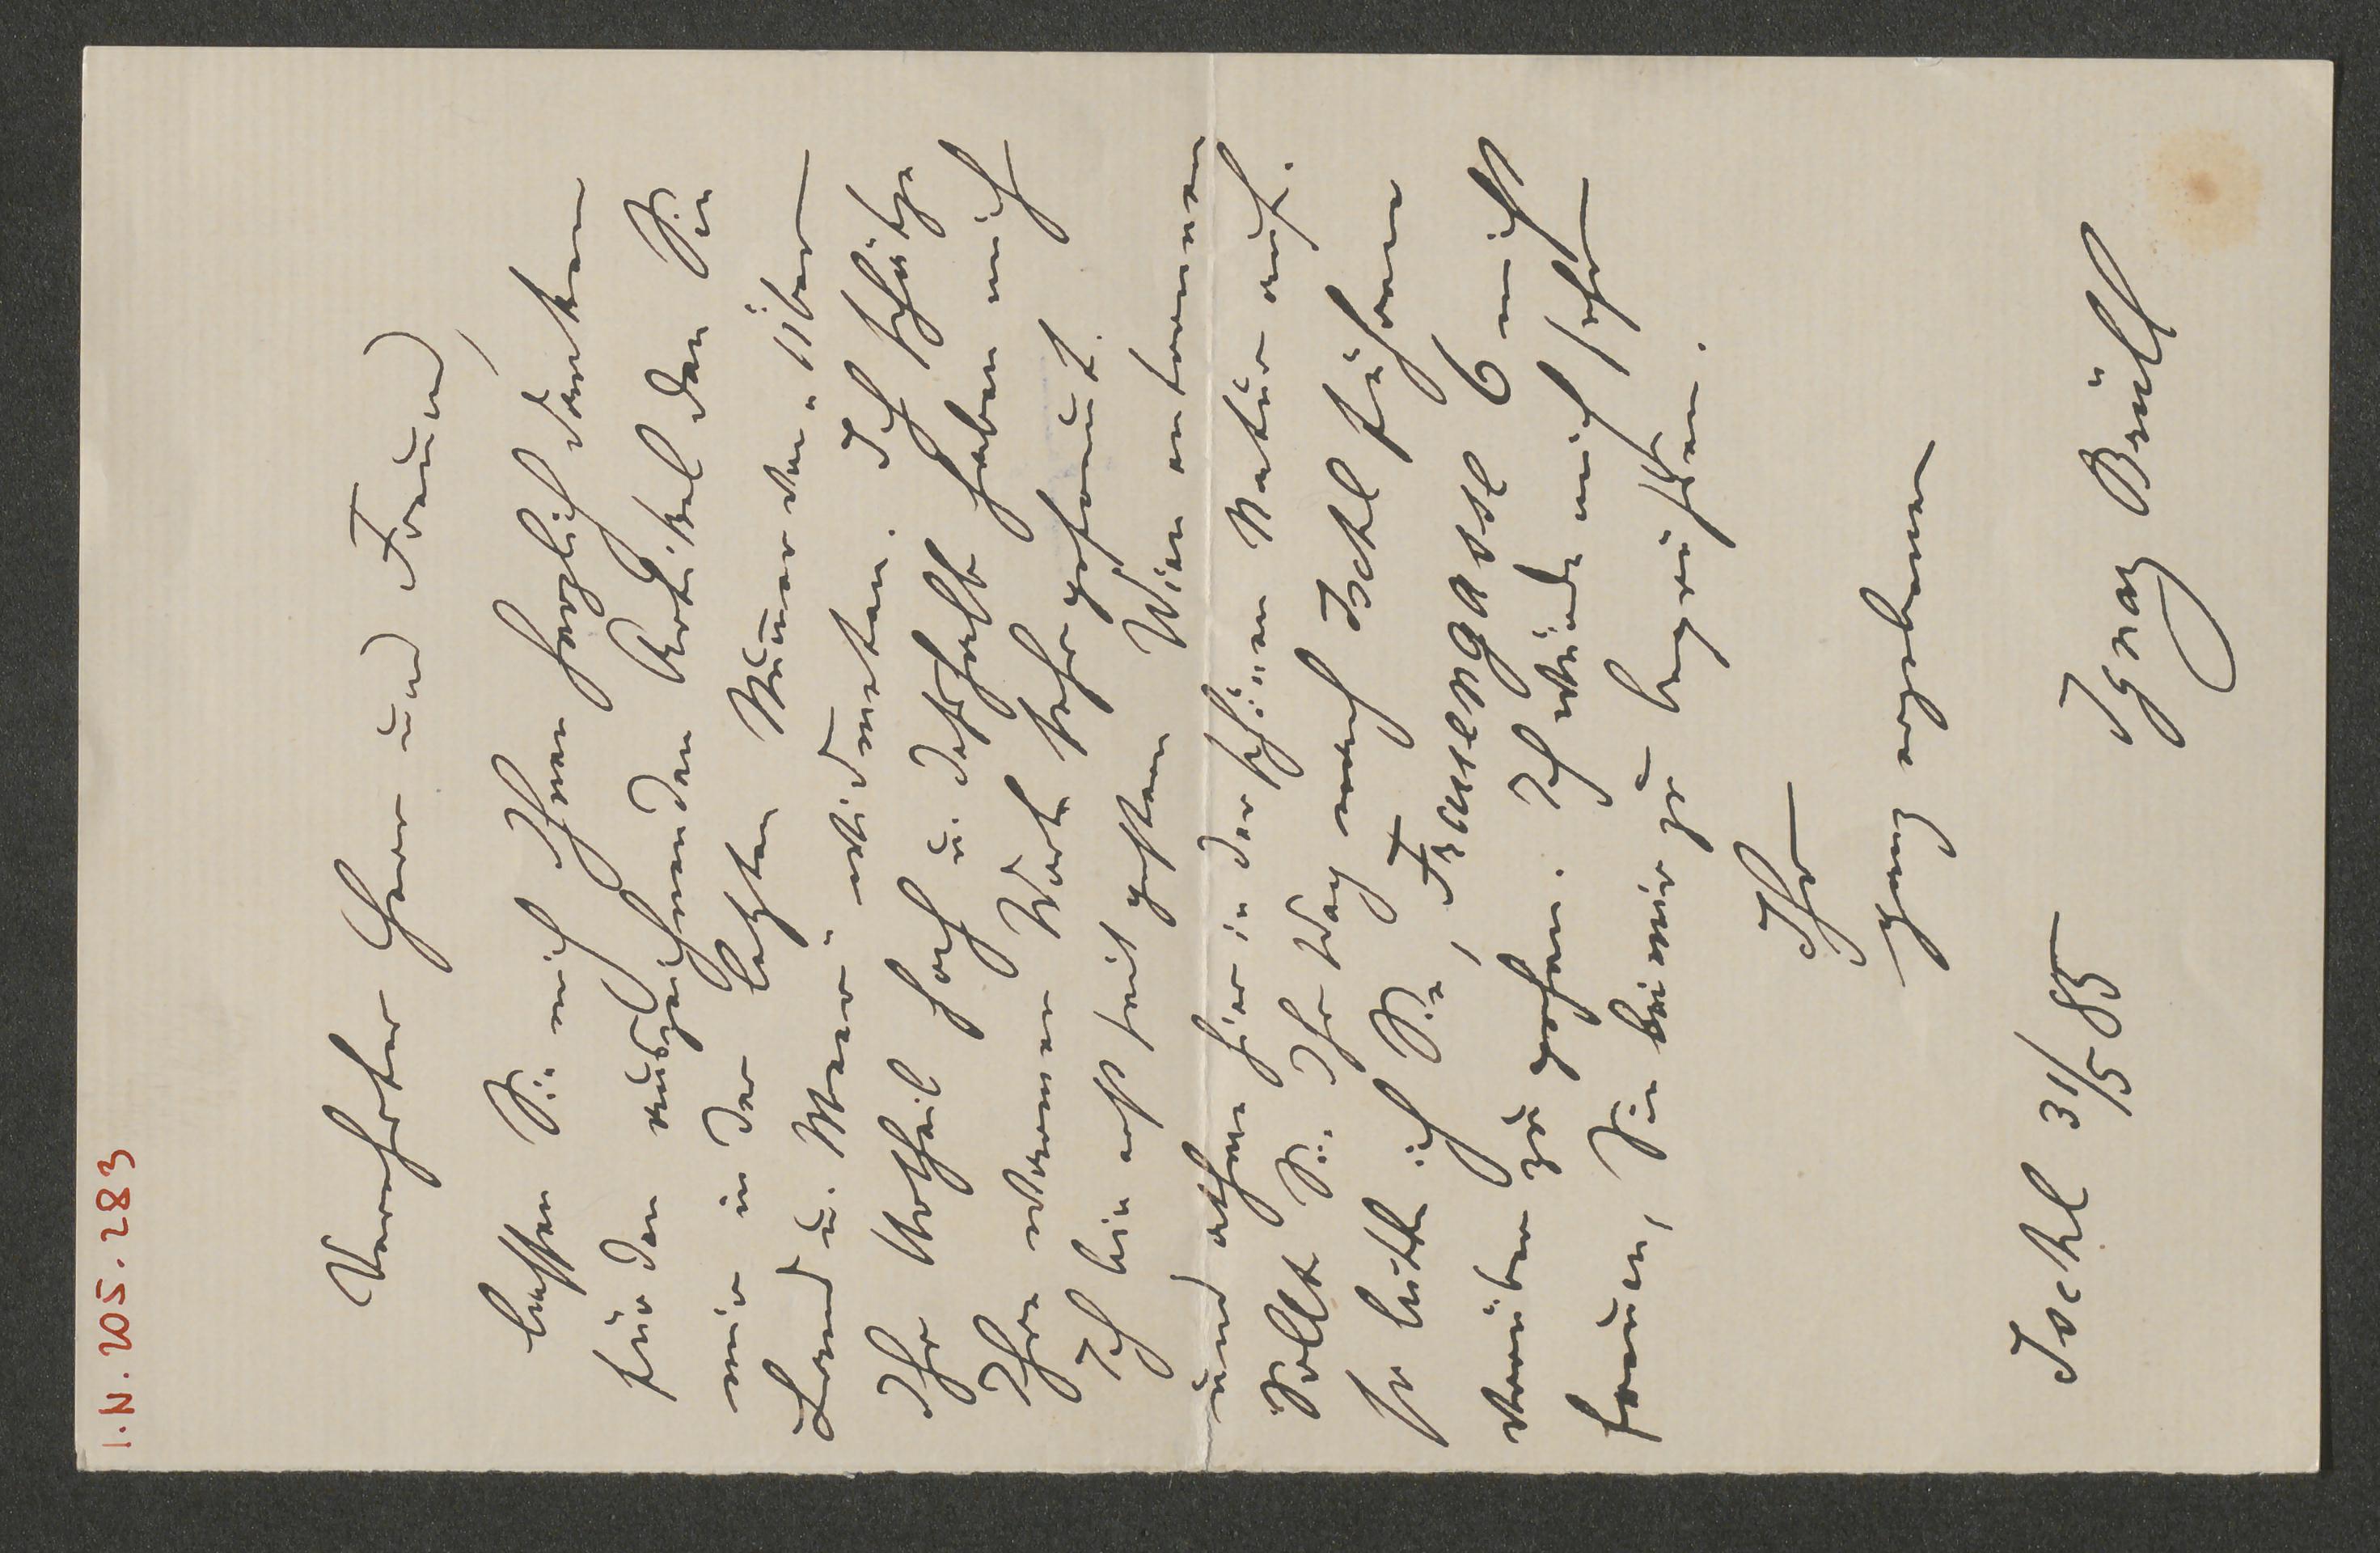 I.N. 205.283
Verehrter Herr und Freund,
lassen Sie mich Ihnen herzlich danken
für den auszeichnenden Artikel den Sie
mir in der letzten Nummer von „Über
Land u. Meer“ widmeten. Ich schätze
Ihr Urtheil hoch u. deßhalb haben mich
Ihre warmen Worte sehr gefreut.
Ich bin erst seit gestern Wien entronnen
und athme hier in der schönen Natur auf.
Sollte Sie Ihr Weg nach Ischl führen
so bitte ich Sie, Frauengasse 6 nicht
vorüber zu gehen. Ich würde mich sehr
freuen, Sie bei mir zu begrüßen.
Ihr
ganz ergebener
Ignaz Brüll
Ischl 31/5 85